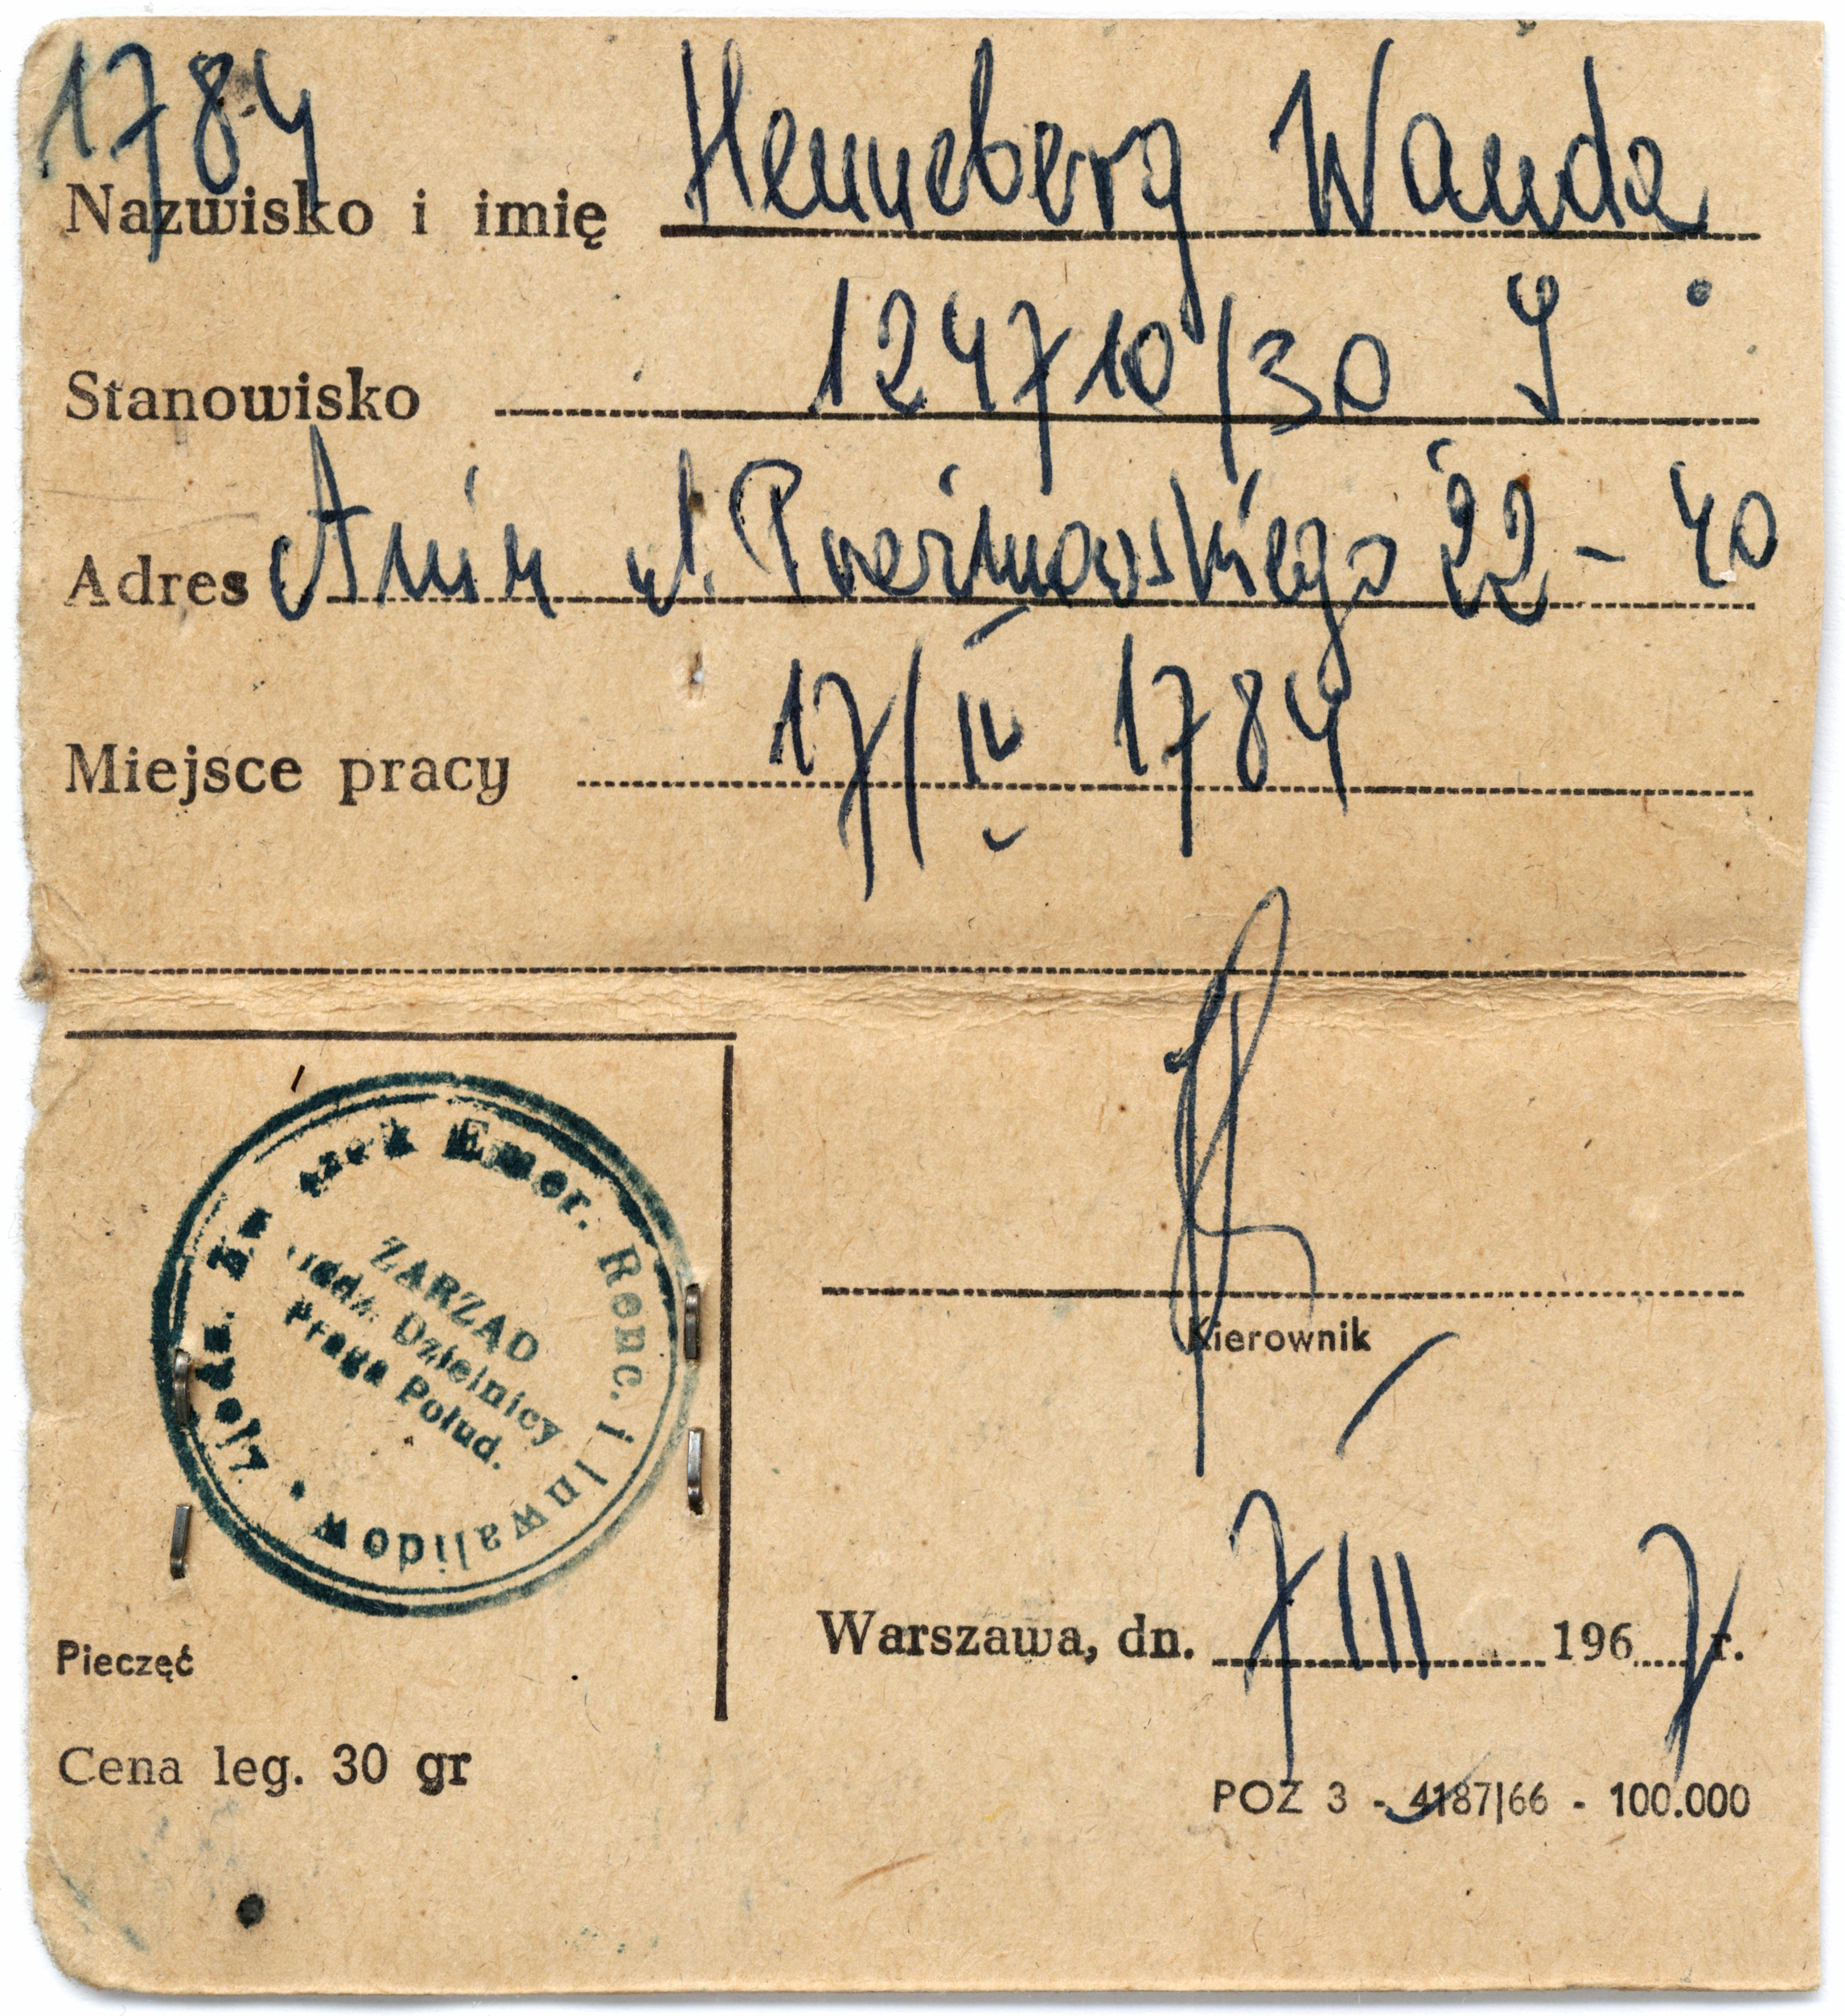 1784
Nazwisko i imię Henneberg Wanda
Stanowisko 124710/30 I
Adres Anin ul. 22 - 40
Miejsce pracy 17/IV 1784
Emer. Renc. i Inwalidów
ZARZĄD
Dzielnicy
Praga Połud.
Kierownik
Warszawa, dn. 7 III 1967 r.
Pieczęć
Cena leg. 30 gr
POZ 3 - 4187/66 - 100.000